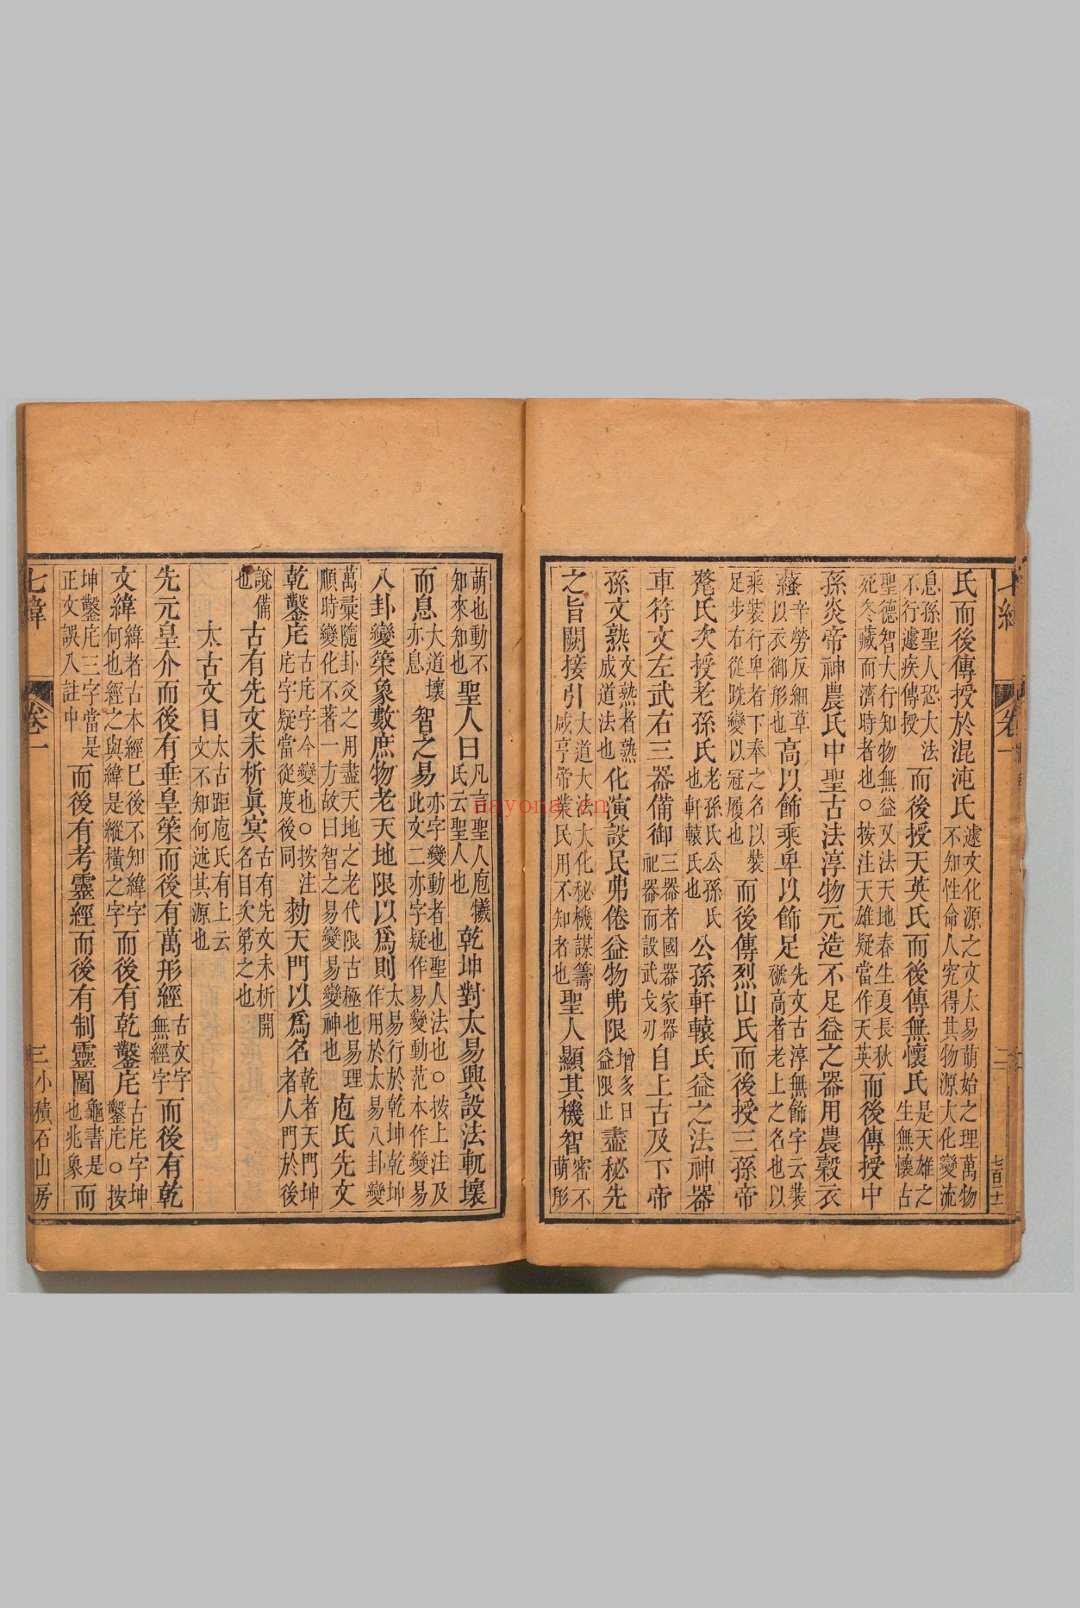 氏而後傳授於混沌氏遽文化源之文太易萌始之理萬物不知性命人究得其物源大化變流
息孫聖人恐大法不行遽疾傳授而後授天英氏而後傳無懷氏是天雄之生無懷古
聖德智大行知物無益又法天地春生夏長秋死冬藏而濟時者也○按注天雄疑當作天英而後傳授中
孫炎帝神農氏中聖古法淳物元造不足益之器用農穀衣
辛勞反細草以衣御形也高以飾乘卑以飾足先文古淳無飾字云裝礎高者老上之名也以
乘裝行卑者下奉之名以裝足步右從跣變以冠履也而後傳烈山氏而後授三孫帝
氏次授老孫氏老孫氏公孫氏也軒轅氏也公孫軒轅氏益之法神器
車符文左武右三器備御三器者國器家器祀器而設武戈刃自上古及下帝
孫文熟文熟者熟成道法也化演設民弗倦益物弗限增多日益限止盡秘先
之旨闢接引大道大法大化秘機謀籌咸亨帝業民用不知者也聖人顯其機智密不萌形
七緯
卷一
萌也動不知來知也聖人曰凡言聖人庖犧氏云聖人也乾坤對太易興設法軌壞
而息大道壞亦息智之易亦字變動者也聖人法也○按上注及此文二亦字疑作易變動范本作變易
八卦變策象數庶物老天地限以爲則太易行於乾坤乾坤作用於太易八卦變
萬彙隨卦爻之用盡天地之老代限古極也易理順時變化不著一方故曰智之易變易變神也庖氏先文
乾鑿庀古庀字今變也○按注庀字疑當從度後同勑天門以爲名乾者天門坤者人門於後
說備也古有先文未析眞冥古有先文未析開名目次第之也
太古文目太古距庖氏有上云文不知何述其源也
先元皇介而後有垂皇策而後有萬形經古文字無經字而後有乾
文緯緯者古本經巳後不知緯字何也經之與緯是縱橫之字而後有乾鑿庀古庀字坤鑿庀○按
坤鑿庀三字當是正文誤入註中而後有考靈經而後有制靈圖龜書是也兆象而
七緯
卷一
三
小積石山房